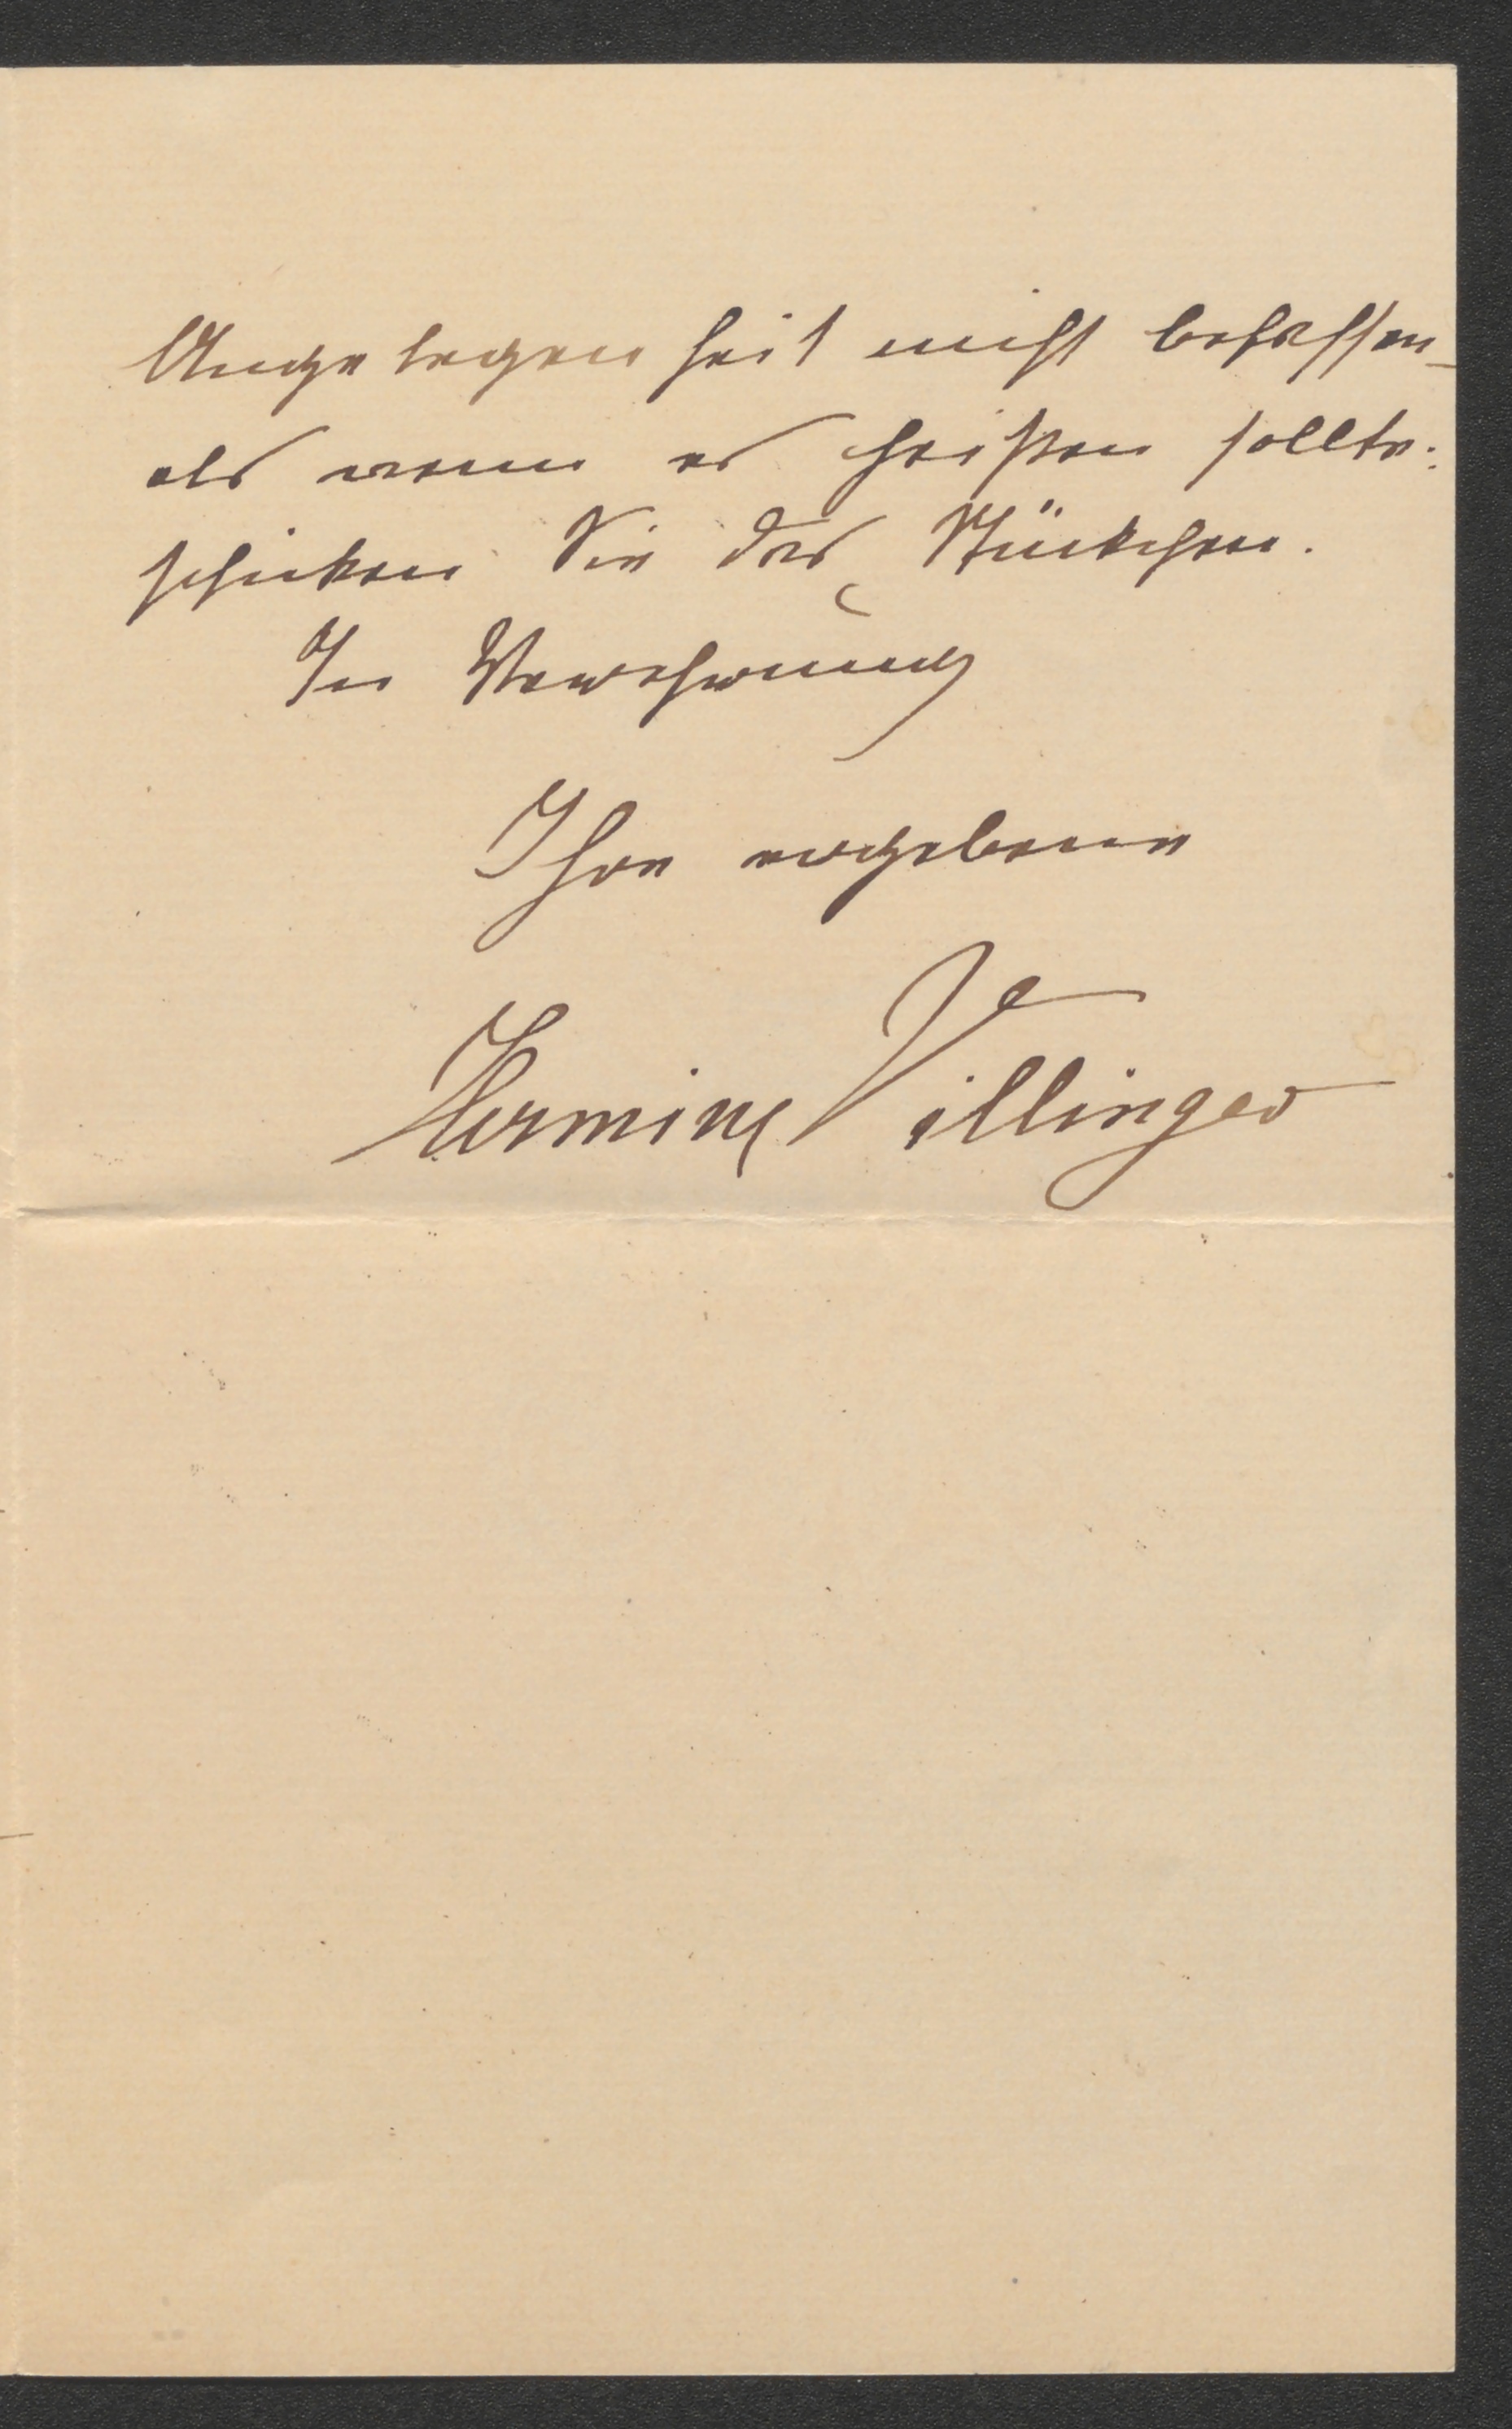 Angelegenheit nicht befassen_
als wenn es heißen sollte:
schicken Sie das Stückchen.
In Verehrung
Ihre ergebene
Hermine Villinger